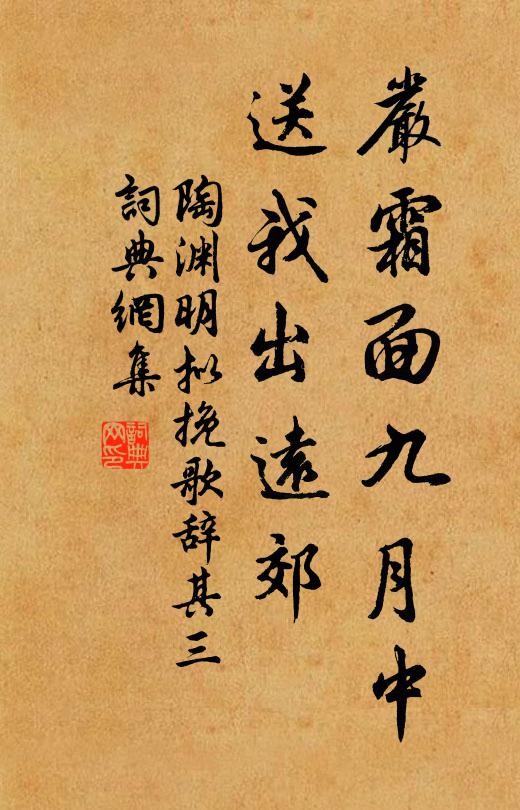 嚴霜面九月中
送我出遠郊
陶渊明拟挽歌辞其三
詞典網集
詞典网印